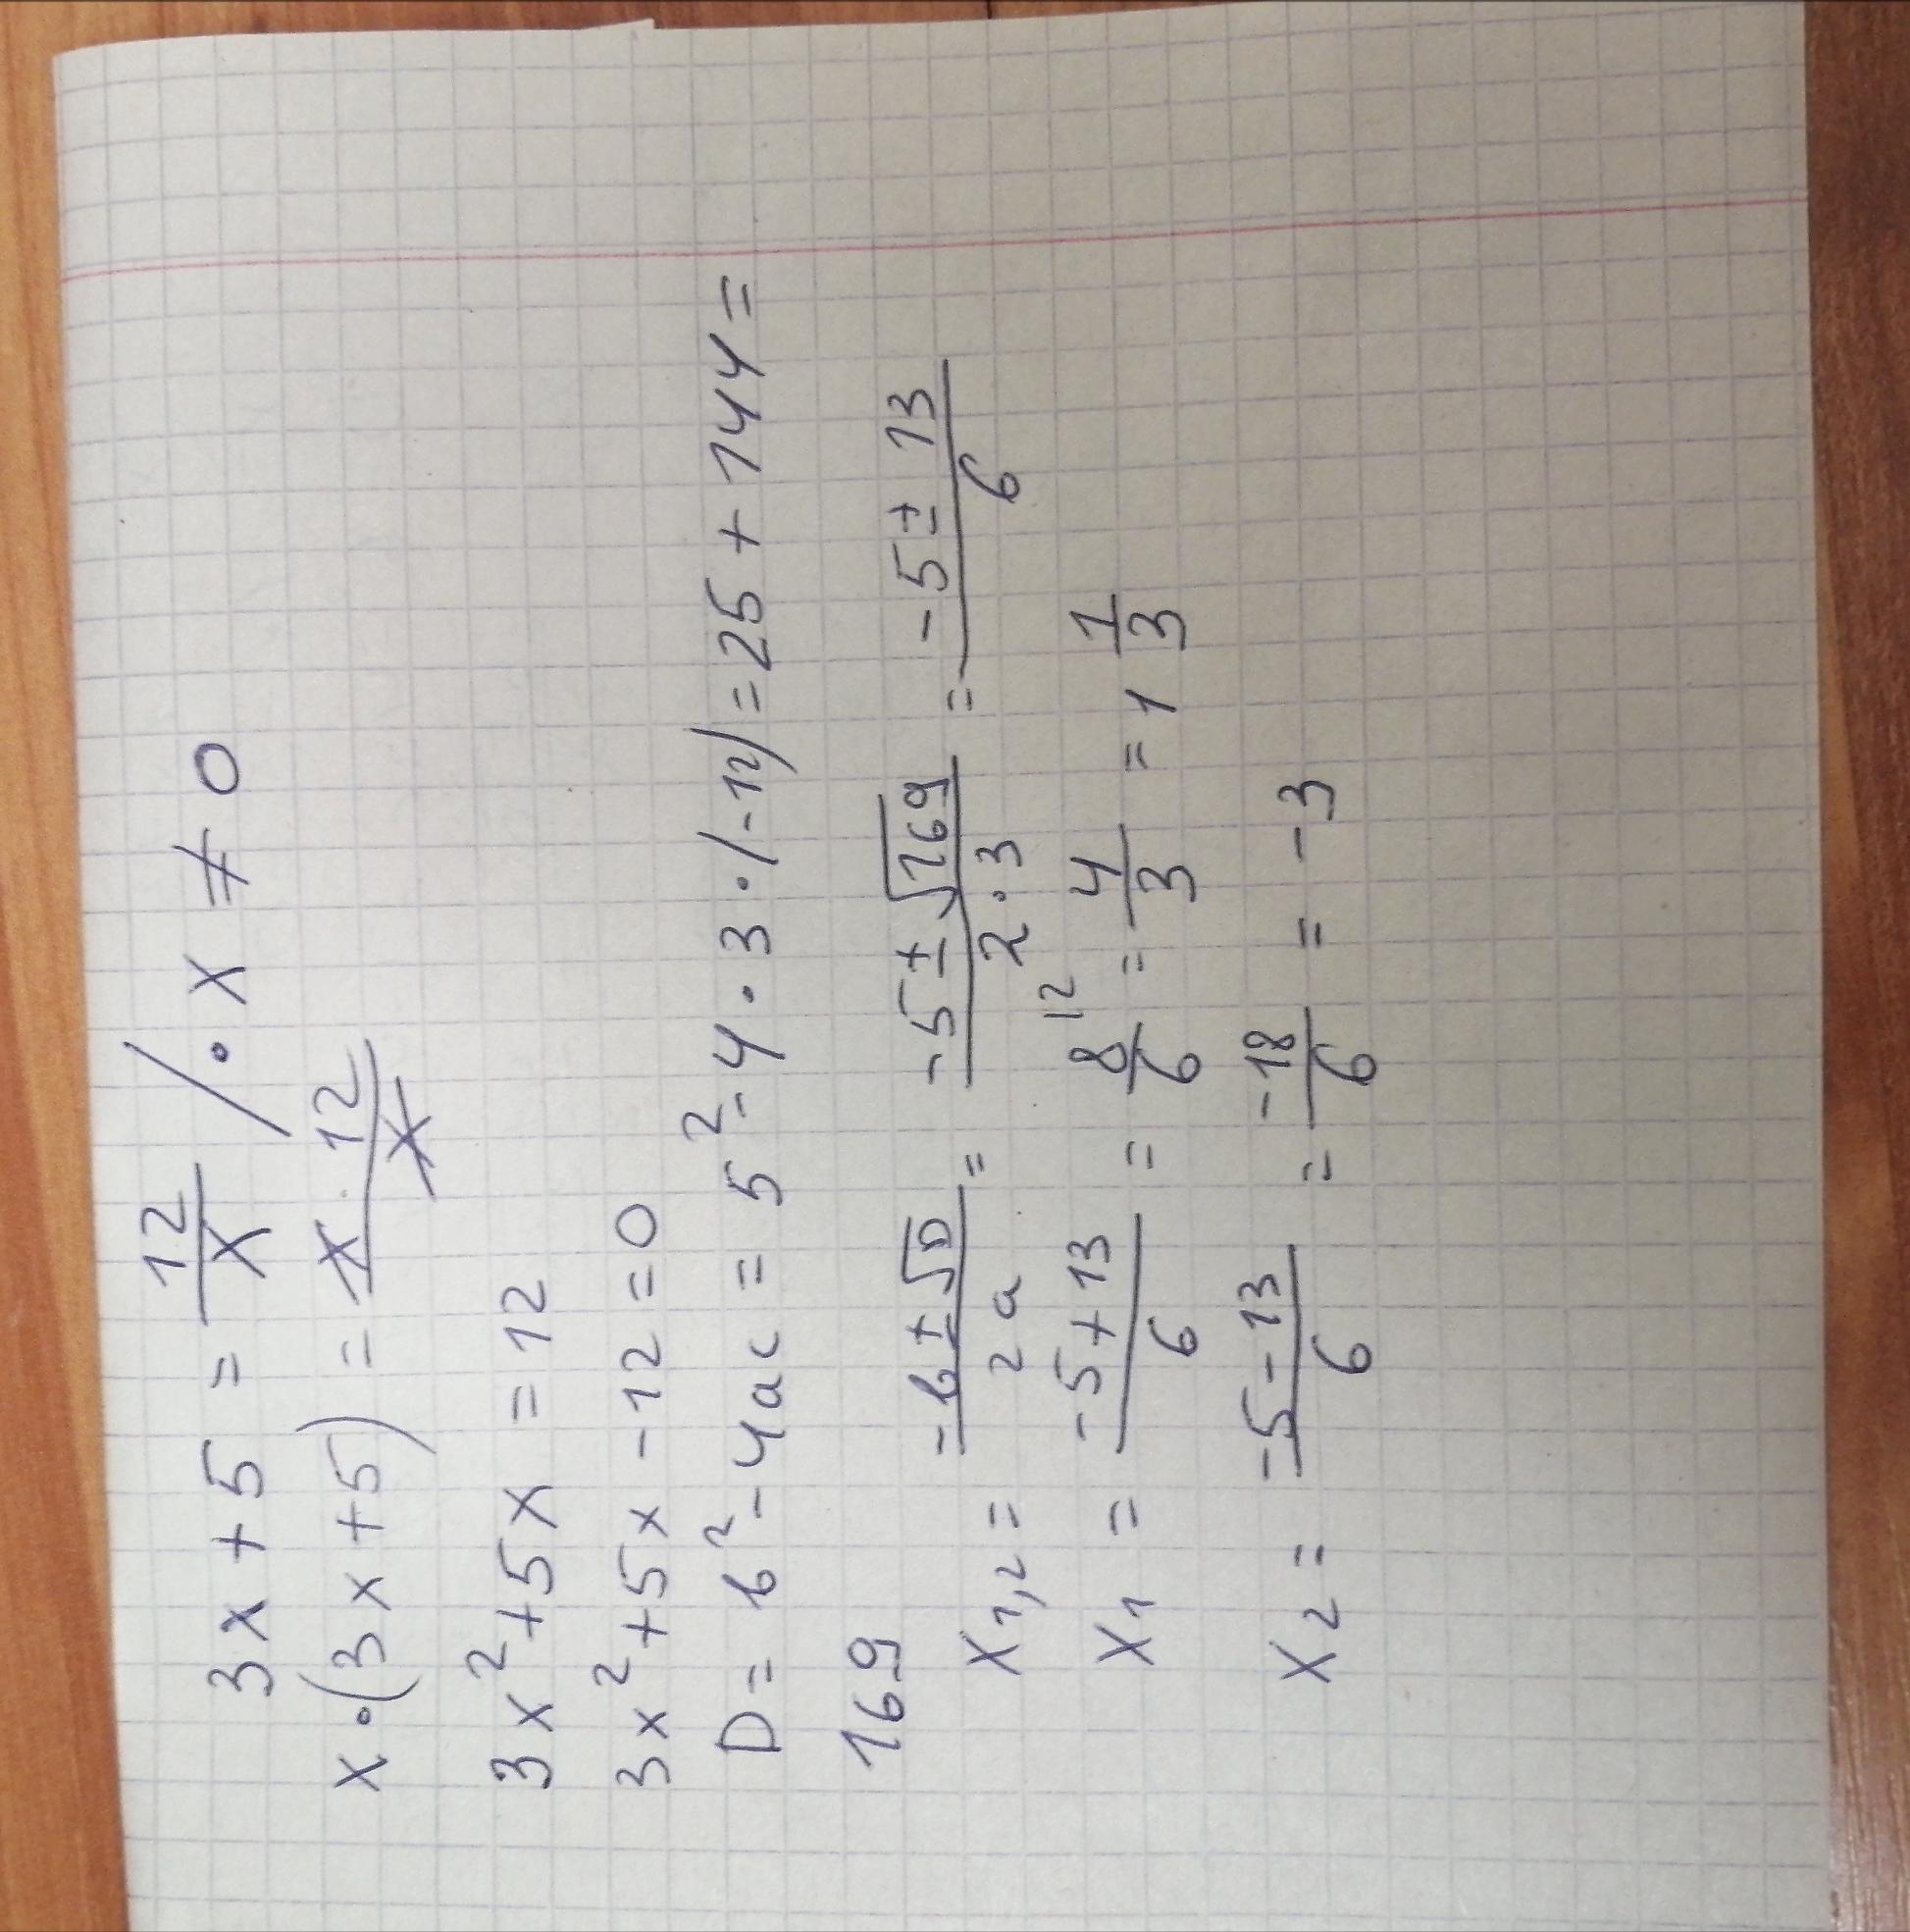 3x + 5 = 12/x / · x ≠ 0
x · (3x + 5) = x · 12/x
3x² + 5x = 12
3x² + 5x - 12 = 0
D = b² - 4ac = 5² - 4 · 3 · (-12) = 25 + 144 =
169
x₁,₂ = -b ± √D / 2a = -5 ± √169 / 2 · 3 = -5 ± 13 / 6
x₁ = -5 + 13 / 6 = 8/6 |2 = 4/3 = 1 1/3
x₂ = -5 - 13 / 6 = -18/6 = -3